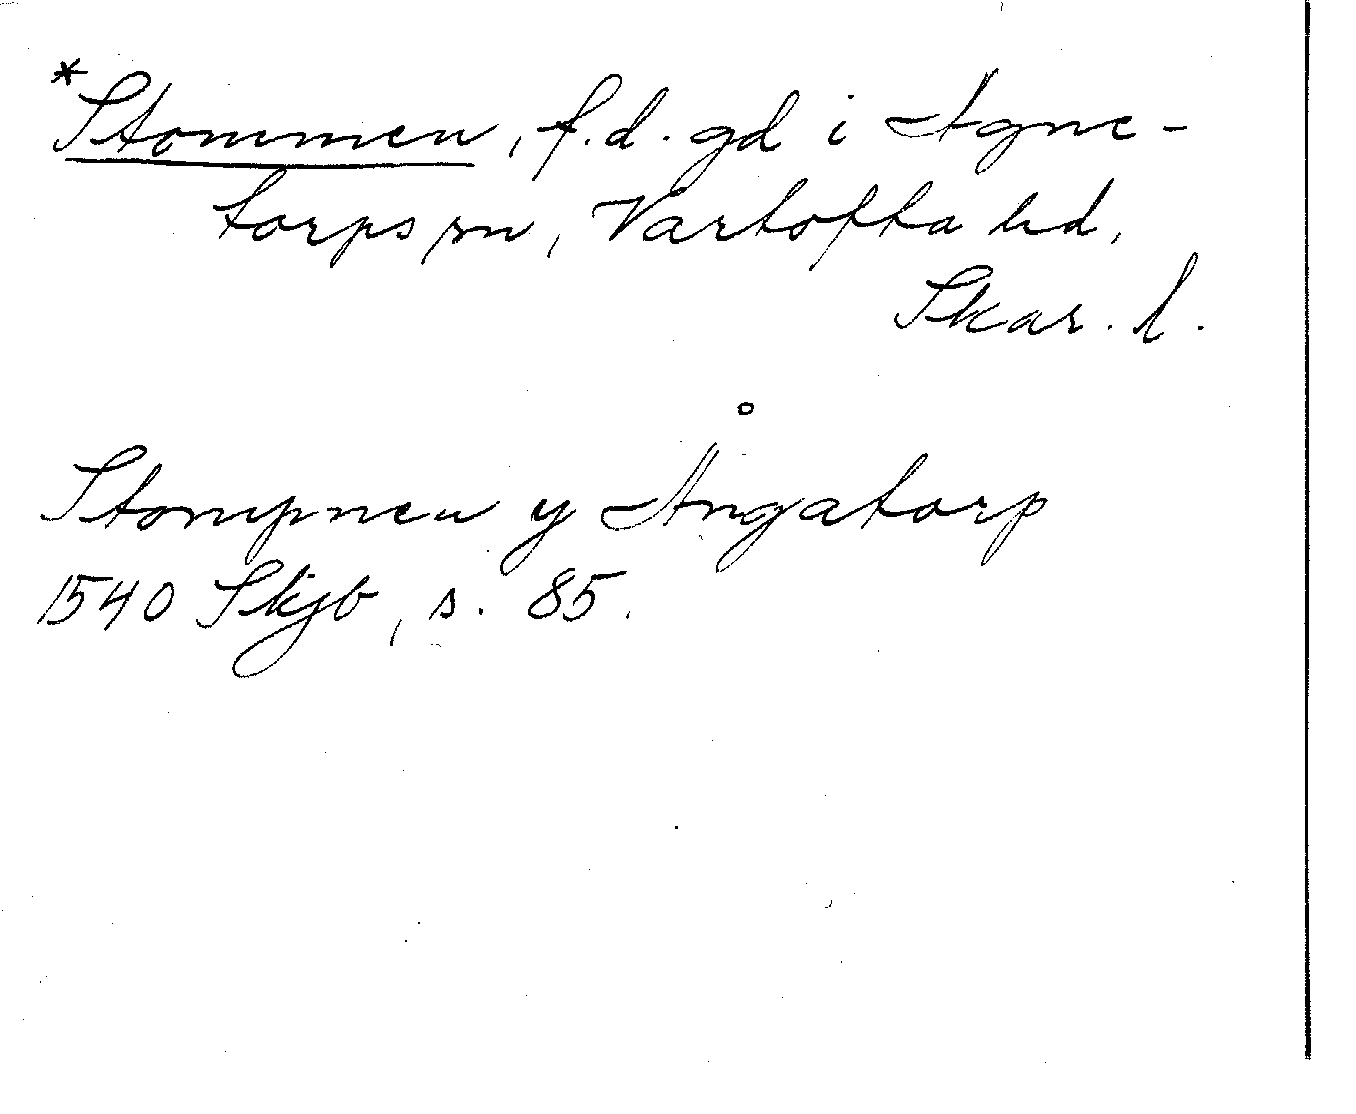 *Stommen, f.d. gd i Agne-
torps sn, Vartofta hd,
Skar. l.
Stompnen y Ångatorp
1540 Skjb, s. 85.